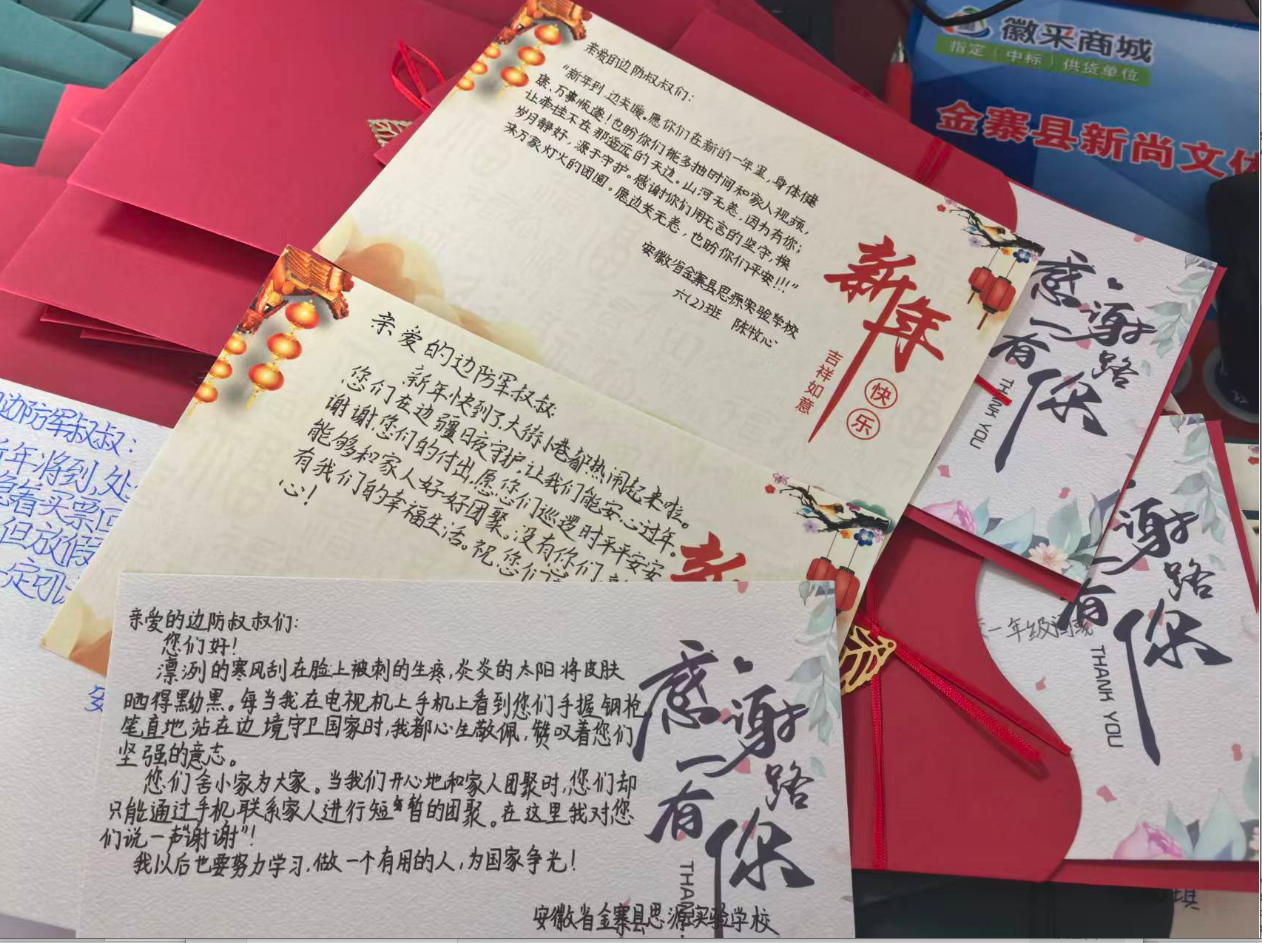 亲爱的边防叔叔们：
“新年到，边关暖。愿你们在新的一年里，身体健
康、万事顺遂！也盼你们能多抽时间和家人视频，
让牵挂不在那遥远的天边。山河无恙，因为有你；
岁月静好，源于守护。感谢你们用无言的坚守，换
来万家灯火的团圆。愿边关无恙，也盼你们平安!!!”
安徽省金寨县思源实验学校
六(2)班 陈牧心
新年
快乐
吉祥如意
亲爱的边防军叔叔:
新年快到了,大街小巷都热闹起来啦。
您们在边疆日夜守护,让我们能安心过年。
谢谢您们的付出,愿您们巡逻时平平安安
能够和家人好好团聚。没有你们
有我们的幸福生活。祝您们
心!
新
亲爱的边防叔叔们:
您们好!
凛冽的寒风刮在脸上被刺的生疼,炎炎的太阳将皮肤
晒得黝黑。每当我在电视机上手机上看到您们手握钢枪,
笔直地站在边境守卫国家时,我都心生敬佩,赞叹着您们
坚强的意志。
您们舍小家为大家。当我们开心地和家人团聚时,您们却
只能通过手机联系家人进行短暂的团聚。在这里我对您
们说一声“谢谢”!
我以后也要努力学习,做一个有用的人,为国家争光!
安徽省金寨县思源实验学校
感谢
一路
有你
THAN
边防军叔叔:
年将到,处
着买票回
但放假
定可以
徽采商城
指定（中标）供货单位
金寨县新尚文体
感谢
一路
有你
THANK YOU
谢
一路
有你
THANK YOU
一年级
琪